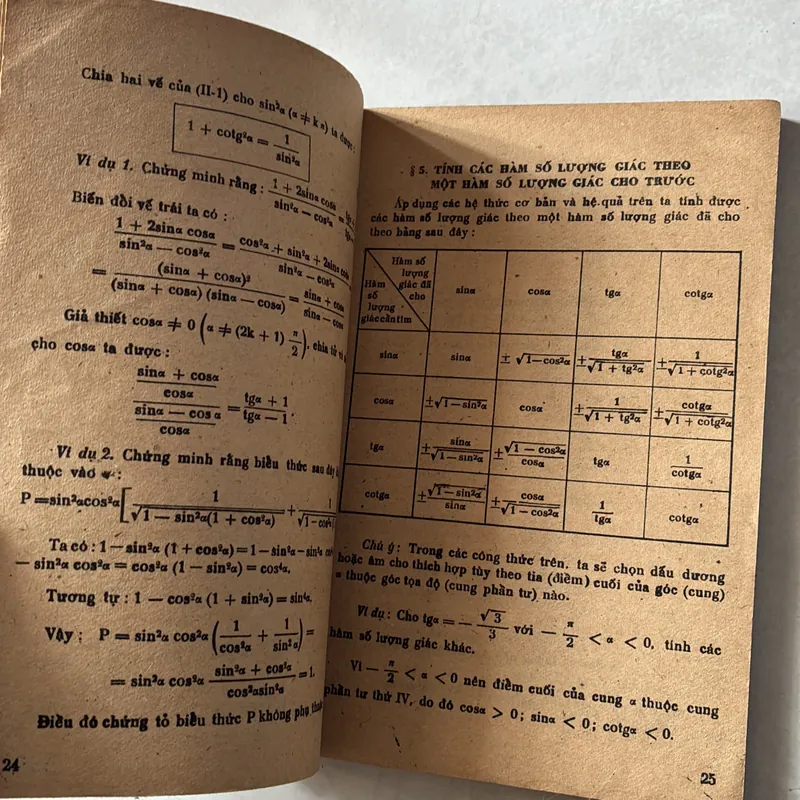 Chia hai vế của (II-1) cho sin²α (α ≠ kπ) ta được :
1 + cotg²α = 1/sin²α
Ví dụ 1. Chứng minh rằng : (1 + 2sinα cosα)/(sin²α — cos²α) =
Biến đổi vế trái ta có :
(1 + 2sinα cosα)/(sin²α — cos²α) = (cos²α + sin²α + 2sinα cosα)/(sin²α — cos²α)
= (sinα + cosα)²/(sinα + cosα) (sinα — cosα) = (sinα + cosα)/(sinα — cosα)
Giả thiết cosα ≠ 0 (α ≠ (2k + 1) π/2), chia tử và
cho cosα ta được :
((sinα + cosα)/cosα)/((sinα — cosα)/cosα) = (tgα + 1)/(tgα — 1)
Ví dụ 2. Chứng minh rằng biểu thức sau đây
thuộc vào α :
P = sin²αcos²α[1/√(1 — sin²α(1 + cos²α)) + 1/√(1-cos²α
Ta có : 1 — sin²α (1 + cos²α) = 1 — sin²α — sin²α
— sin²α cos²α = cos²α (1 — sin²α) = cos⁴α.
Tương tự : 1 — cos²α (1 + sin²α) = sin⁴α.
Vậy : P = sin²α cos²α (1/cos²α + 1/sin²α) =
= sin²α cos²α (sin²α + cos²α)/(cos²αsin²α) = 1.
Điều đó chứng tỏ biểu thức P không phụ thuộc
24
§ 5. TÍNH CÁC HÀM SỐ LƯỢNG GIÁC THEO
MỘT HÀM SỐ LƯỢNG GIÁC CHO TRƯỚC
Áp dụng các hệ thức cơ bản và hệ quả trên ta tính được
các hàm số lượng giác theo một hàm số lượng giác đã cho
theo bảng sau đây :
Hàm số
lượng
giác đã
cho
Hàm
số
lượng
giác cần tìm
sinα cosα tgα cotgα
sinα sinα ± √(1—cos²α) ± tgα/√(1 + tg²α) ± 1/√(1 + cotg²α)
cosα ±√(1—sin²α) cosα ± 1/√(1 + tg²α) ± cotgα/√(1 + cotg²α)
tgα ± sinα/√(1—sin²α) ± √(1 — cos²α)/cosα tgα 1/cotgα
cotgα ± √(1—sin²α)/sinα ± cosα/√(1—cos²α) 1/tgα cotgα
Chú ý : Trong các công thức trên, ta sẽ chọn dấu dương
hoặc âm cho thích hợp tùy theo tia (điểm) cuối của góc (cung)
α thuộc góc tọa độ (cung phần tư) nào.
Ví dụ : Cho tgα = — √3/3 với — π/2 < α < 0, tính các
hàm số lượng giác khác.
Vì — π/2 < α < 0 nên điểm cuối của cung α thuộc cung
phần tư thứ IV, do đó cosα > 0 ; sinα < 0 ; cotgα < 0.
25